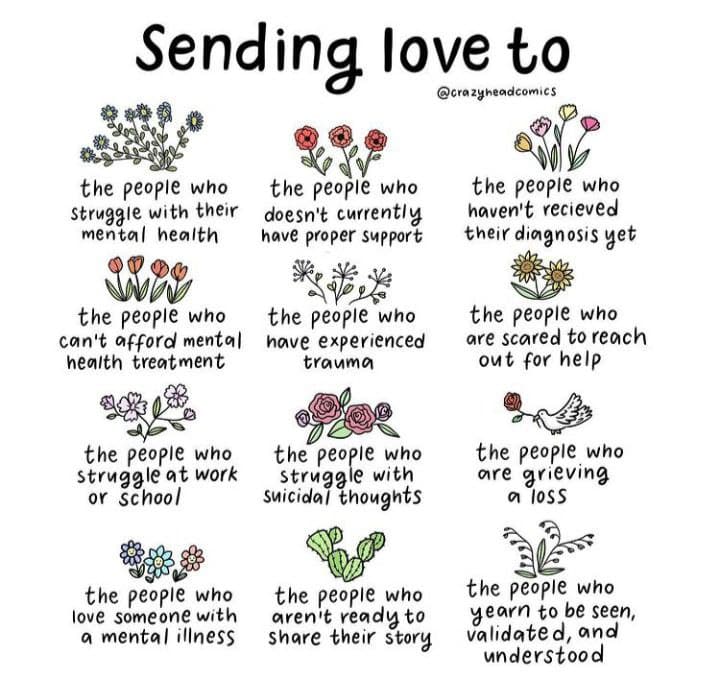 Sending love to
@crazyheadcomics
the people who
struggle with their
mental health
the people who
doesn't currently
have proper support
the people who
haven't recieved
their diagnosis yet
the people who
can't afford mental
health treatment
the people who
have experienced
trauma
the people who
are scared to reach
out for help
the people who
struggle at work
or school
the people who
struggle with
suicidal thoughts
the people who
are grieving
a loss
the people who
love someone with
a mental illness
the people who
aren't ready to
share their story
the people who
yearn to be seen,
validated, and
understood